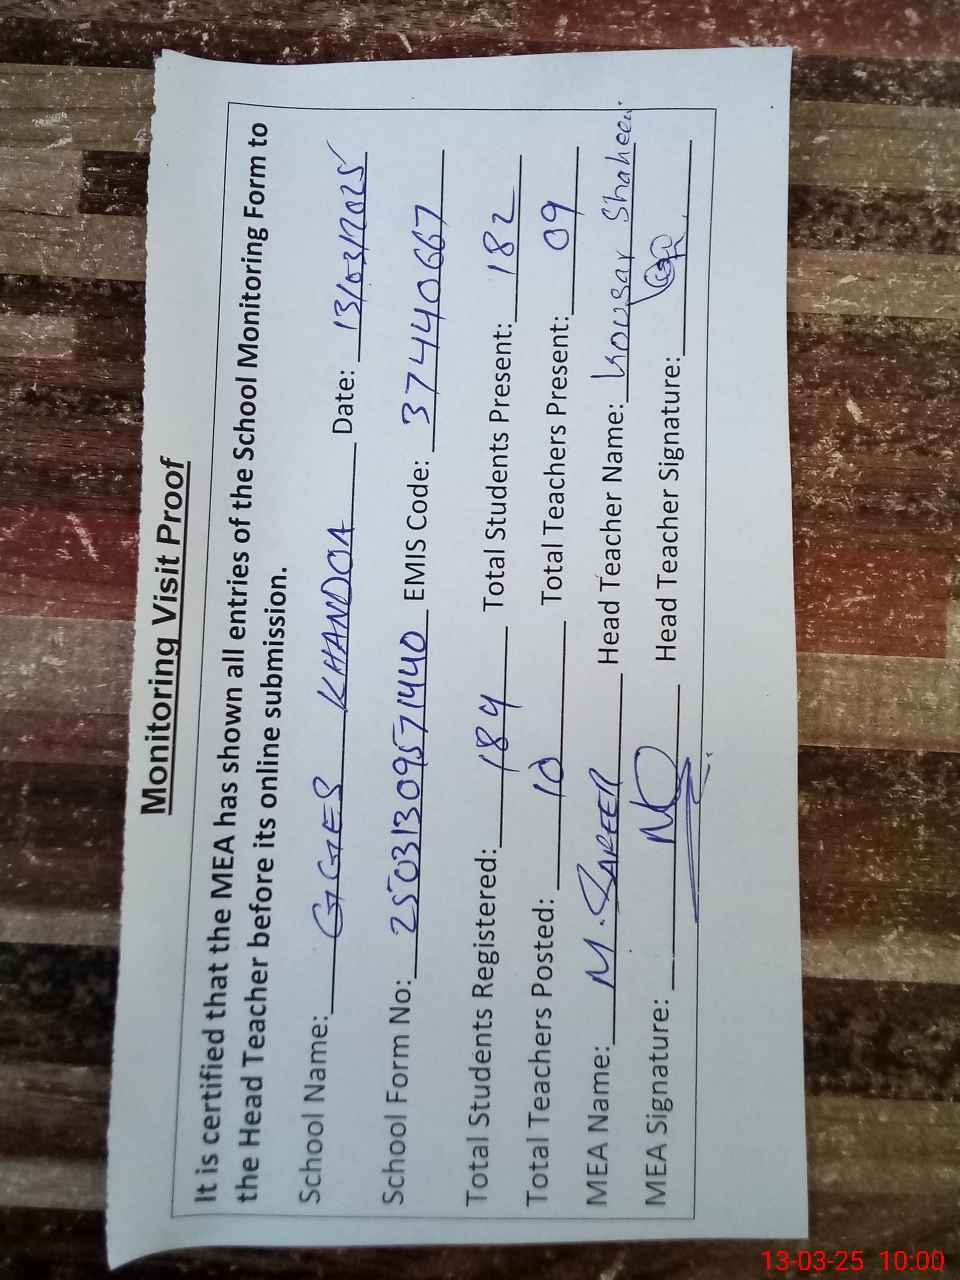 Monitoring Visit Proof
It is certified that the MEA has shown all entries of the School Monitoring Form to
the Head Teacher before its online submission.
School Name: GGES KHANDOA Date: 13/03/2025
School Form No: 25031309571440 EMIS Code: 37440667
Total Students Registered: 184 Total Students Present: 182
Total Teachers Posted: 10 Total Teachers Present: 09
MEA Name: M. Head Teacher Name: Kousar Shaheen
MEA Signature: Head Teacher Signature:
13-03-25 10:00